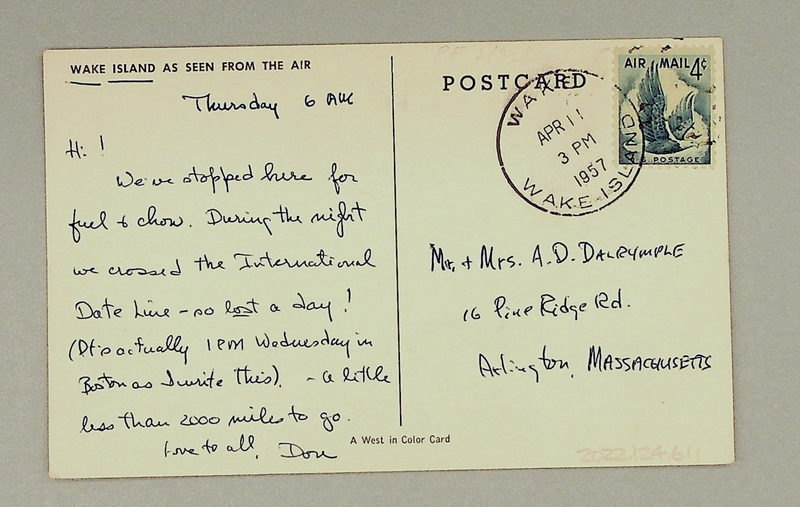 WAKE ISLAND AS SEEN FROM THE AIR
Thursday 6 AM
Hi!
We've stopped here for
fuel & chow. During the night
we crossed the International
Date Line - so lost a day!
(It's actually 1 PM Wednesday in
Boston as I write this). - a little
less than 2000 miles to go.
Love to all, Don
POSTCARD
WAKE
APR 11
3 PM
1957
WAKE ISLAND
AIR MAIL 4¢
U.S. POSTAGE
Mr. + Mrs. A. D. DALRYMPLE
16 Pine Ridge Rd.
Arlington, MASSACHUSETTS
A West in Color Card
2022.124.611